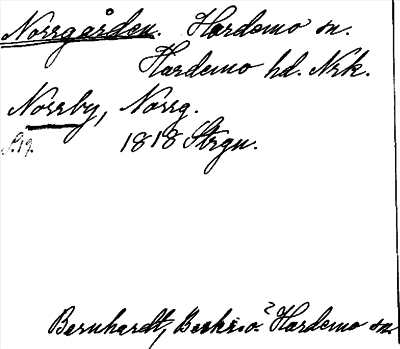 Norrgården. Hardemo sn.
Hardemo hd. Nrk.
Norrby, Norrg.
1818 Strgn.
Bernhardt, Hardemo sn.